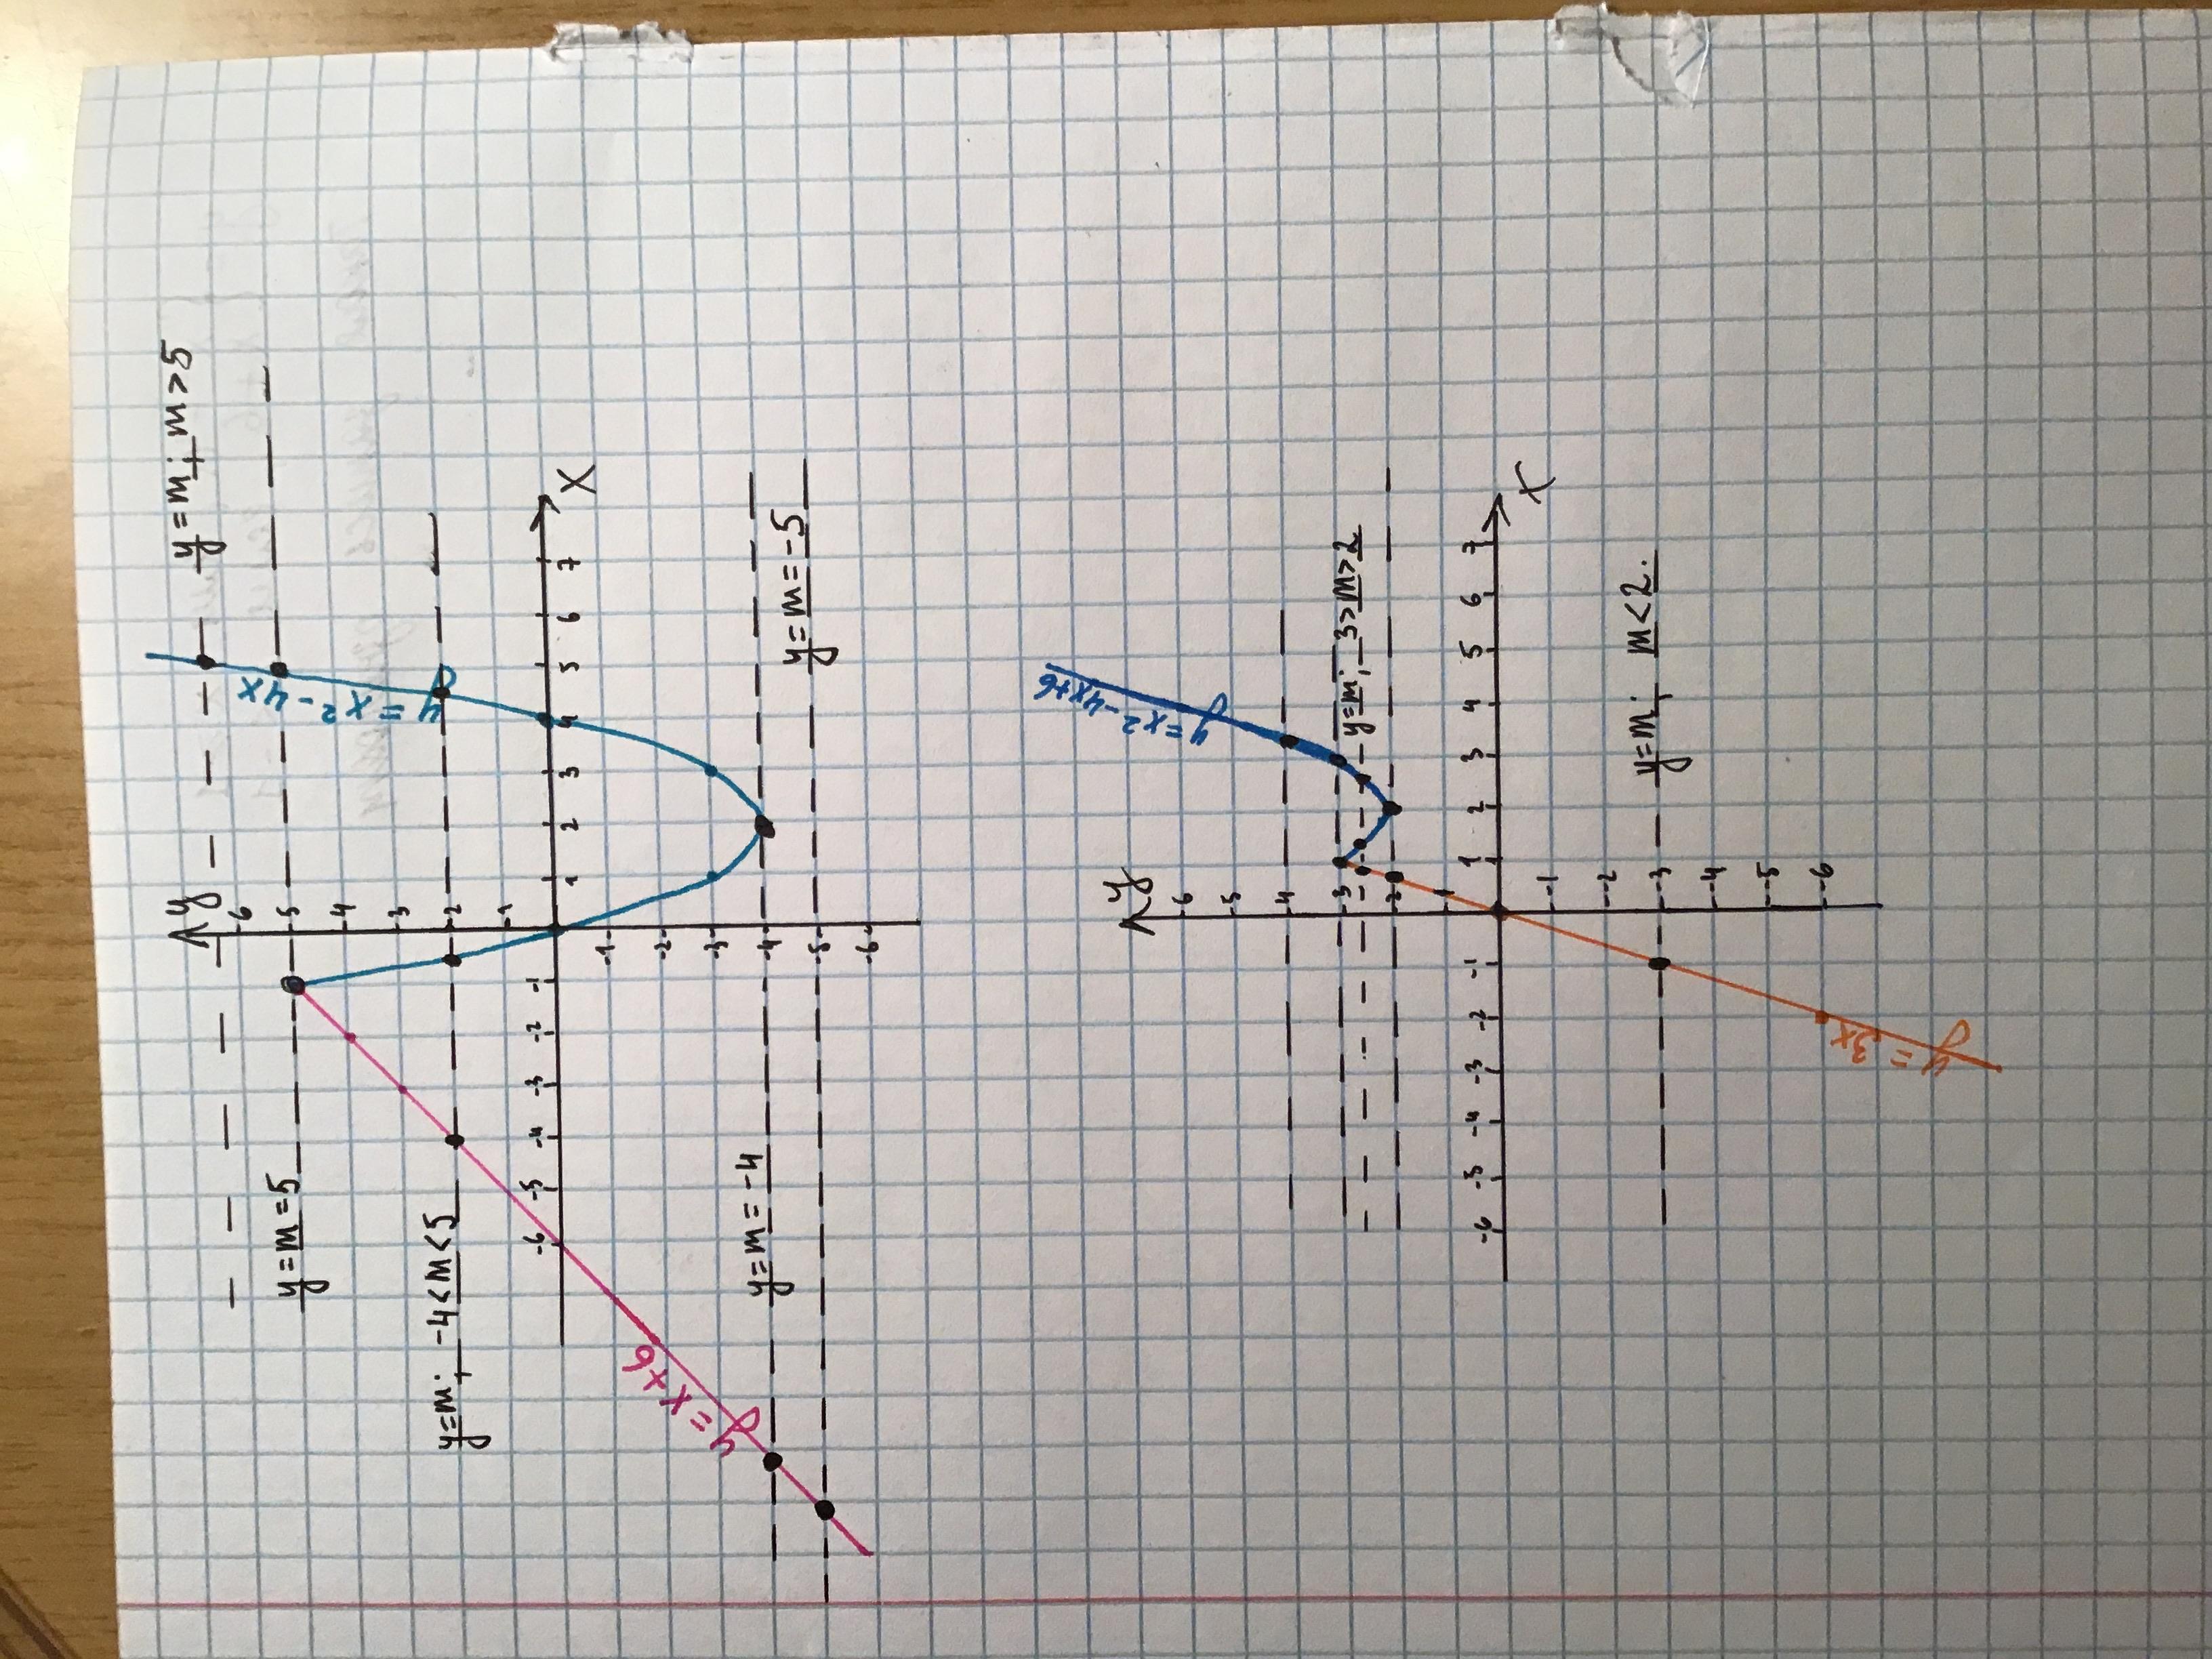 y=m; m>5
y
6
y=m=5
5
y=x²-4x
4
3
y=m; -4<m<5
2
1
-6 -5 -4 -3 -2 -1 1 2 3 4 5 6 7 X
-1
-2
y=x+6
-3
y=m=-4
-4
y=m=-5
-5
-6
y=x²-4x+6
y
6
5
4
3
y=m; 3>m>2
2
1
-6 -5 -4 -3 -2 -1 1 2 3 4 5 6 7
X
-1
-2
y=m; m<2.
-3
-4
-5
-6
y=3x